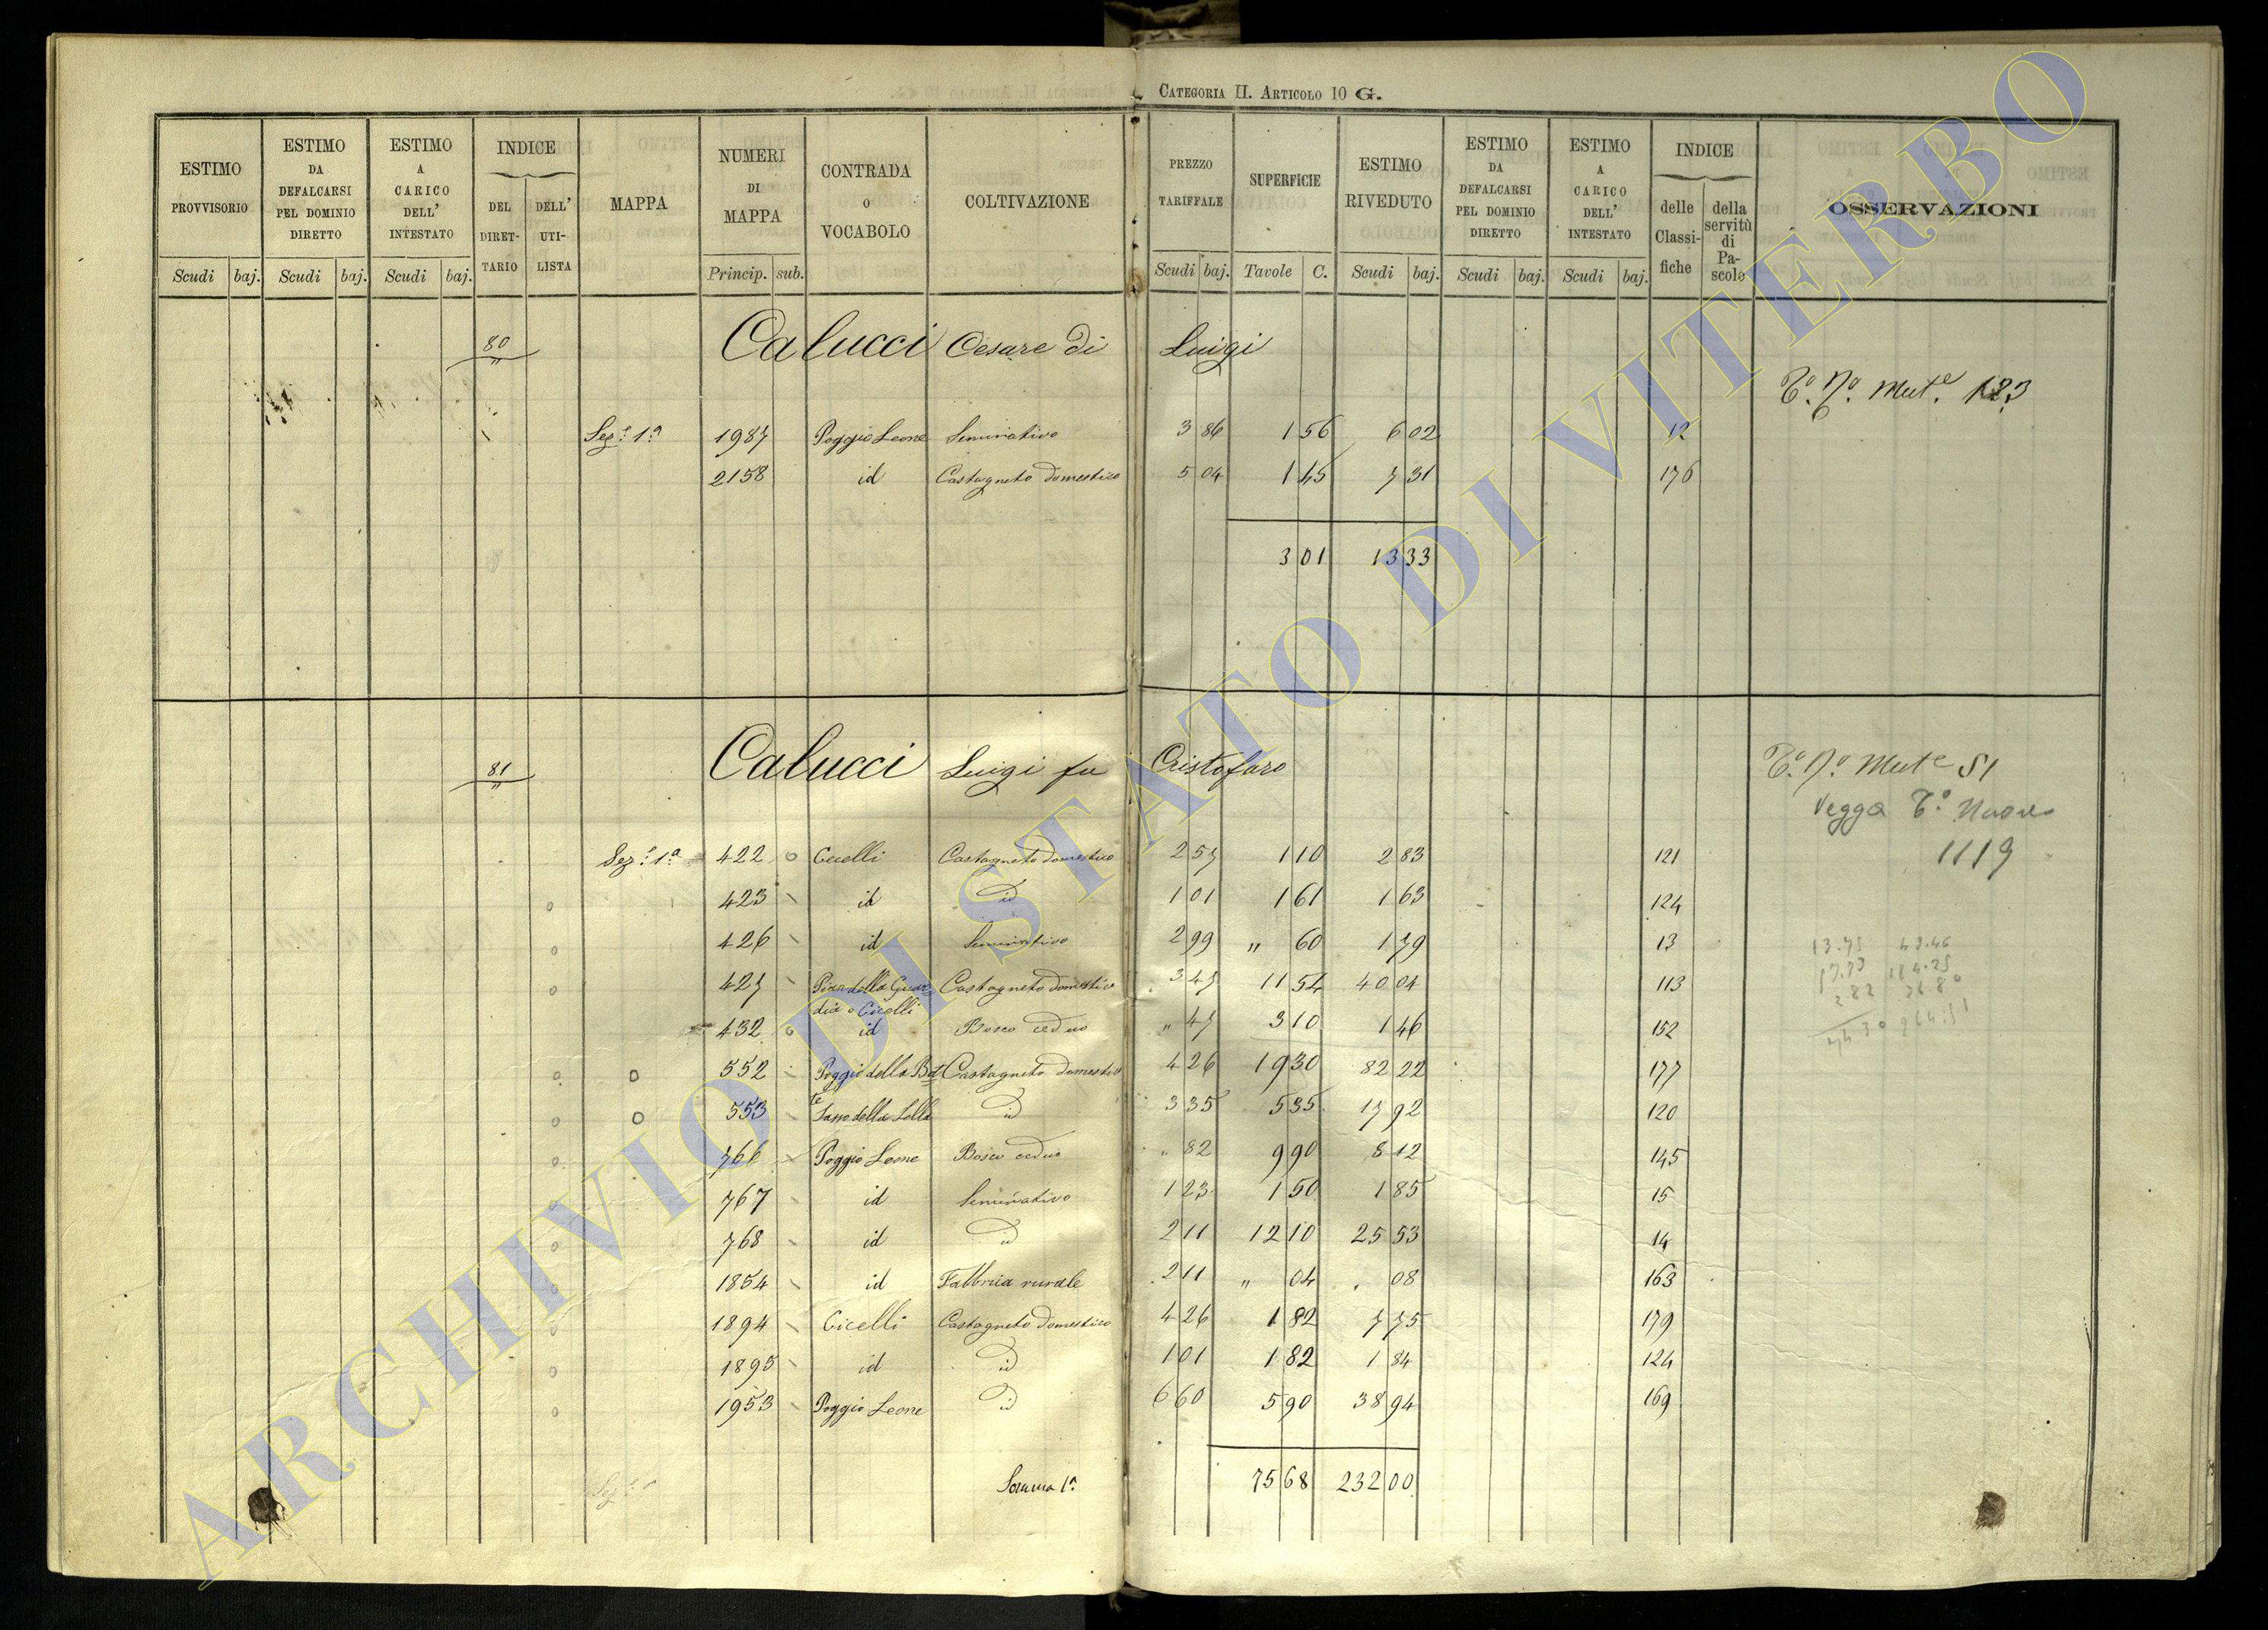 CATEGORIA II. ARTICOLO 10 G.
ESTIMO PROVVISORIO Scudi baj.
ESTIMO DA DEFALCARSI PEL DOMINIO DIRETTO Scudi baj.
ESTIMO A CARICO DELL' INTESTATO Scudi baj.
INDICE DEL DIRET-TARIO DELL' UTI-LISTA
MAPPA
NUMERI DI MAPPA Princip. sub.
CONTRADA o VOCABOLO
COLTIVAZIONE
PREZZO TARIFFALE Scudi baj.
SUPERFICIE Tavole C.
ESTIMO RIVEDUTO Scudi baj.
ESTIMO DA DEFALCARSI PEL DOMINIO DIRETTO Scudi baj.
ESTIMO A CARICO DELL' INTESTATO Scudi baj.
INDICE delle Classi-fiche della servitù di Pa-scolo
OSSERVAZIONI
80 Calucci Cesare di Luigi
T.º N.º Mut.e 123
Sez.e 1.a 1987 Poggio Leone Seminativo 3 86 1 56 6 02 12
2158 id Castagneto domestico 5 04 1 45 7 31 176
3 01 13 33
81 Calucci Luigi fu Cristofaro
T.º N.º Mut.e 51
Vegga T.º Nuovo
1119
Sez.e 1.a 422 Cicelli Castagneto domestico 2 57 1 10 2 83 121
423 id id 1 01 1 61 1 63 124
426 id Seminativo 2 99 " 60 1 79 13
427 Pian della Guar=dia o Cicelli Castagneto domestico 3 47 11 54 40 04 113
432 id Bosco ceduo " 47 3 10 1 46 152
552 Poggio della Bot=te Castagneto domestico 4 26 19 30 82 22 177
553 Sasso della Lella id 3 35 5 35 17 92 120
766 Poggio Leone Bosco ceduo " 82 9 90 8 12 145
767 id Seminativo 1 23 1 50 1 85 15
768 id id 2 11 12 10 25 53 14
1854 id Fabbrica rurale 2 11 " 04 . 08 163
1894 Cicelli Castagneto domestico 4 26 1 82 7 75 179
1895 id id 1 01 1 82 1 84 124
1953 Poggio Leone id 6 60 5 90 38 94 169
Somma 1.a 75 68 232 00
ARCHIVIO DI STATO DI VITERBO